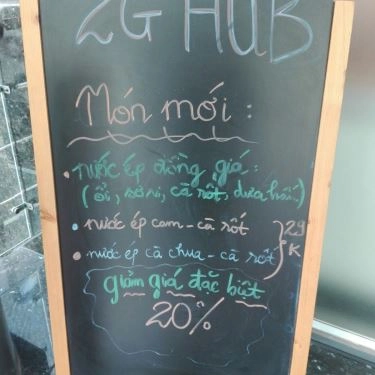 2G HUB
Món mới :
• nước ép đồng giá :
( ổi, sơ ri, cà rốt, dưa hấu.)
• nước ép cam - cà rốt
• nước ép cà chua - cà rốt
29
K
giảm giá đặc biệt
20%